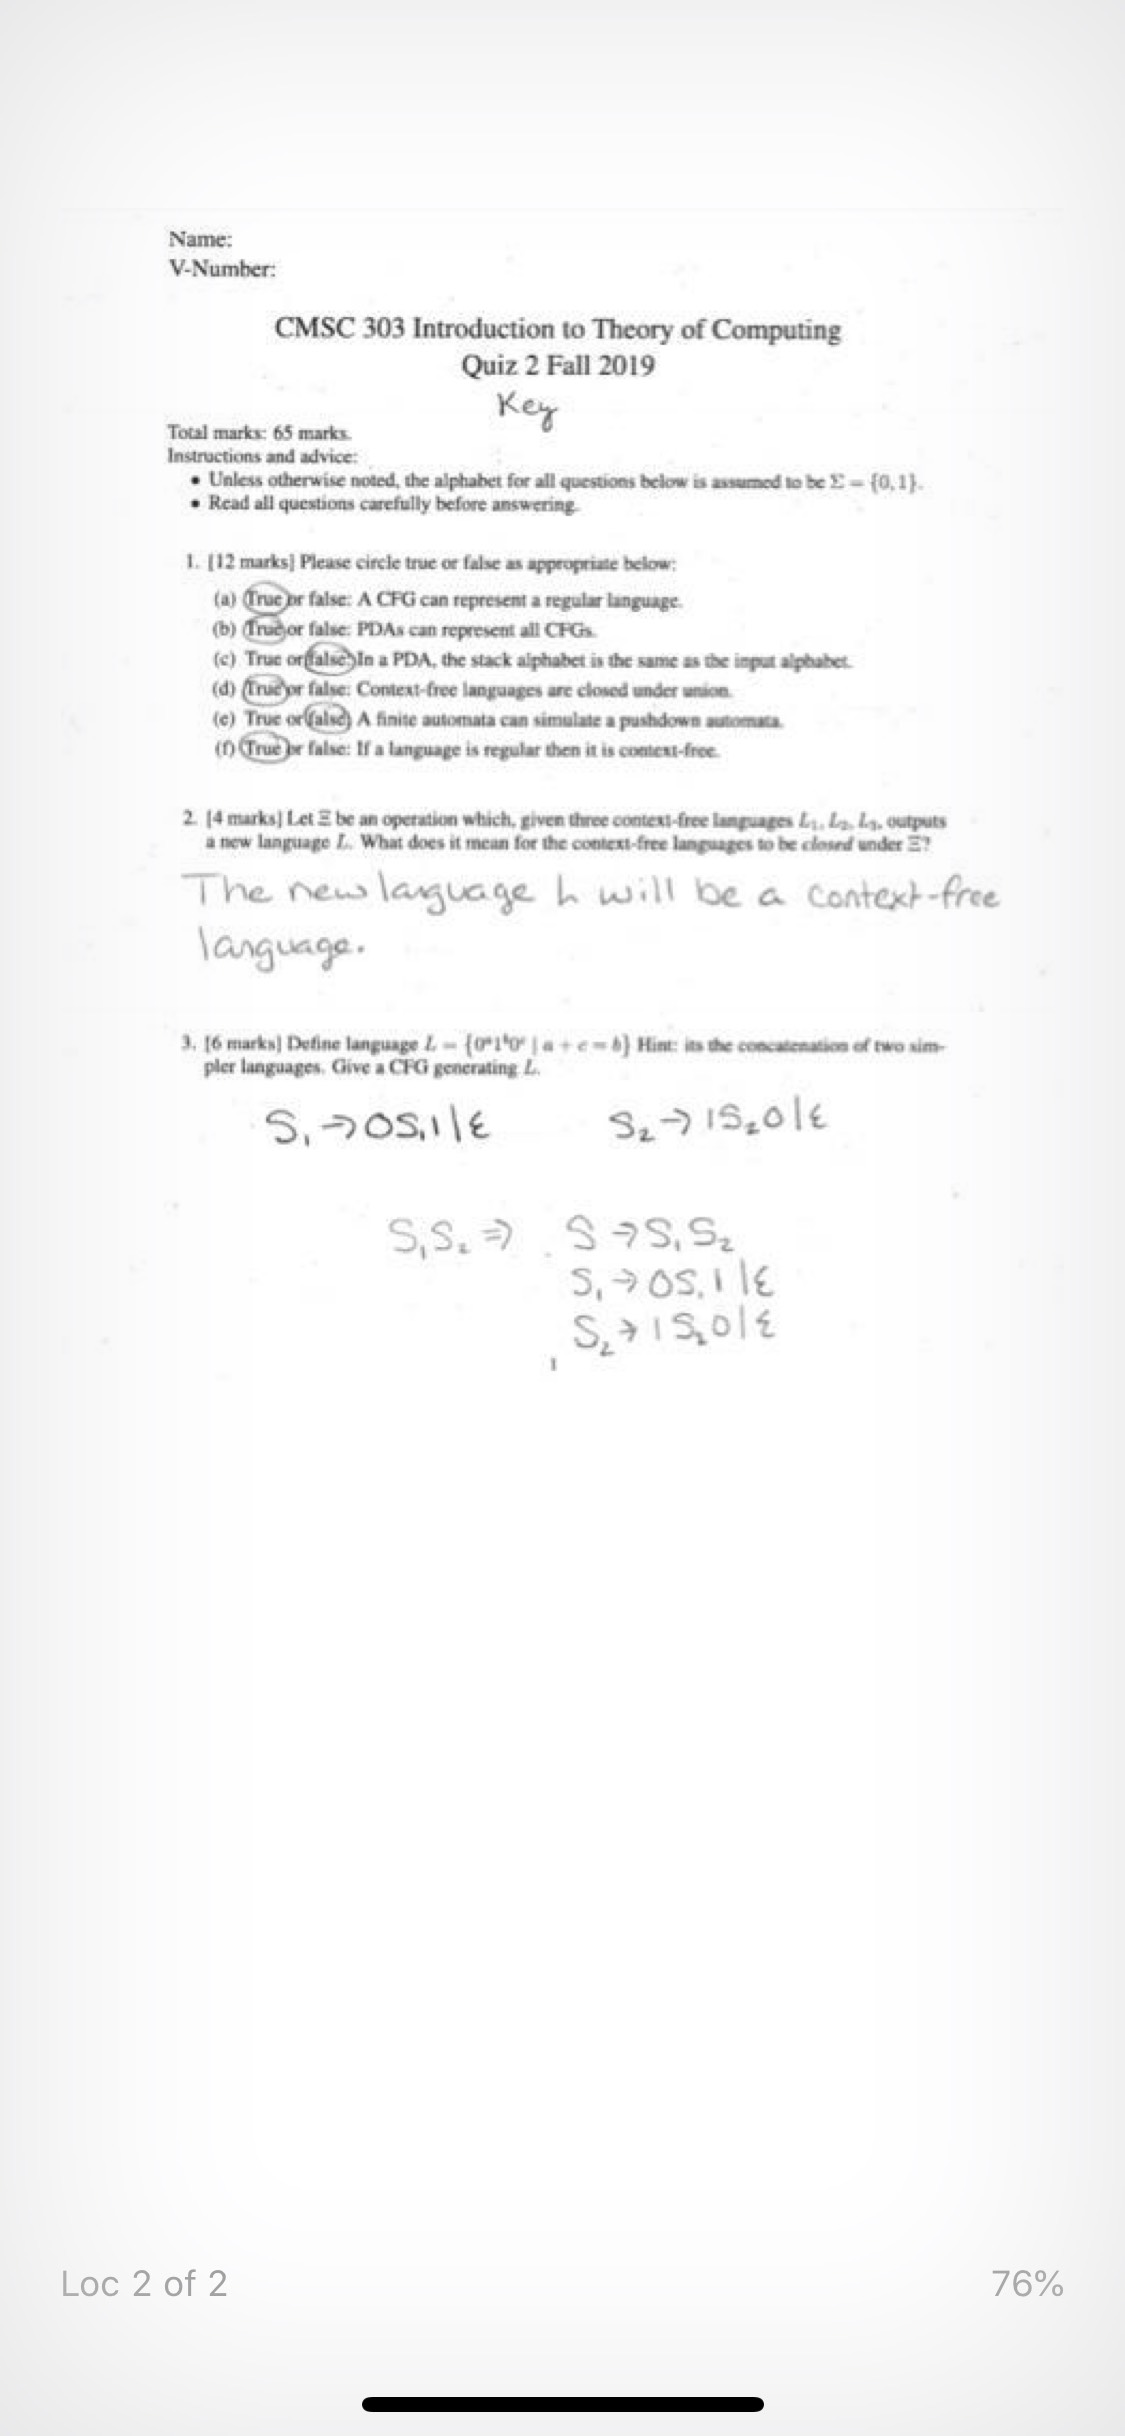 Name:
V-Number:
CMSC 303 Introduction to Theory of Computing
Quiz 2 Fall 2019
Key
Total marks: 65 marks.
Instructions and advice:
• Unless otherwise noted, the alphabet for all questions below is assumed to be Σ = {0, 1}.
• Read all questions carefully before answering.
1. [12 marks] Please circle true or false as appropriate below:
(a) True or false: A CFG can represent a regular language.
(b) True or false: PDAs can represent all CFGs.
(c) True or false: In a PDA, the stack alphabet is the same as the input alphabet.
(d) True or false: Context-free languages are closed under union.
(e) True or false: A finite automata can simulate a pushdown automata.
(f) True or false: If a language is regular then it is context-free.
2. [4 marks] Let Ξ be an operation which, given three context-free languages L₁, L₂, L₃, outputs
a new language L. What does it mean for the context-free languages to be closed under Ξ?
The new language L will be a context-free
language.
3. [6 marks] Define language L = {0ᵃ1ᵇ0ᶜ | a + c = b} Hint: its the concatenation of two sim-
pler languages. Give a CFG generating L.
S₁ → 0S₁1 | ε S₂ → 1S₂0 | ε
S₁S₂ ⇒ S → S₁S₂
S₁ → 0S₁1 | ε
S₂ → 1S₂0 | ε
1
Loc 2 of 2 76%